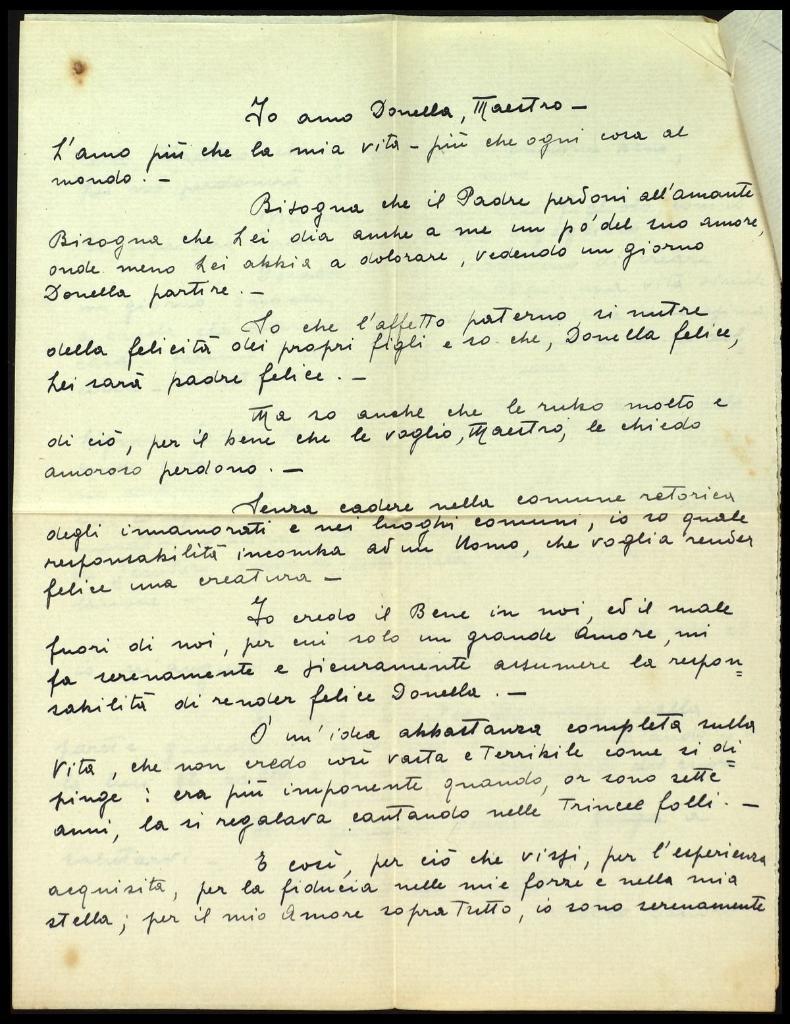 Io amo Donella, Maestro –
L'amo più che la mia vita – più che ogni cosa al
mondo. –
Bisogna che il Padre perdoni all'amante
Bisogna che Lei dia anche a me un pò' del suo amore,
onde meno Lei abbia a dolorare, vedendo un giorno
Donella partire. –
So che l'affetto paterno si nutre
della felicità dei propri figli e so che, Donella felice,
Lei sarà padre felice. –
Ma so anche che le rubo molto e
di ciò, per il bene che le voglio, Maestro, le chiedo
amoroso perdono. –
Senza cadere nella comune retorica
degli innamorati e nei luoghi comuni, io so quale
responsabilità incomba ad un Uomo, che voglia render
felice una creatura –
Io credo il Bene in noi, ed il male
fuori di noi, per cui solo un grande Amore, mi
fa serenamente e sicuramente assumere la respon=
sabilità di render felice Donella. –
O' un'idea abbastanza completa sulla
Vita, che non credo così vasta e Terribile come si di
pinge: era più imponente quando, or sono sette=
anni, la si regalava cantando nelle Trincee folli. –
E così, per ciò che vissi, per l'esperienza
acquisita, per la fiducia nelle mie forze e nella mia
stella; per il mio Amore sopraTutto, io sono serenamente